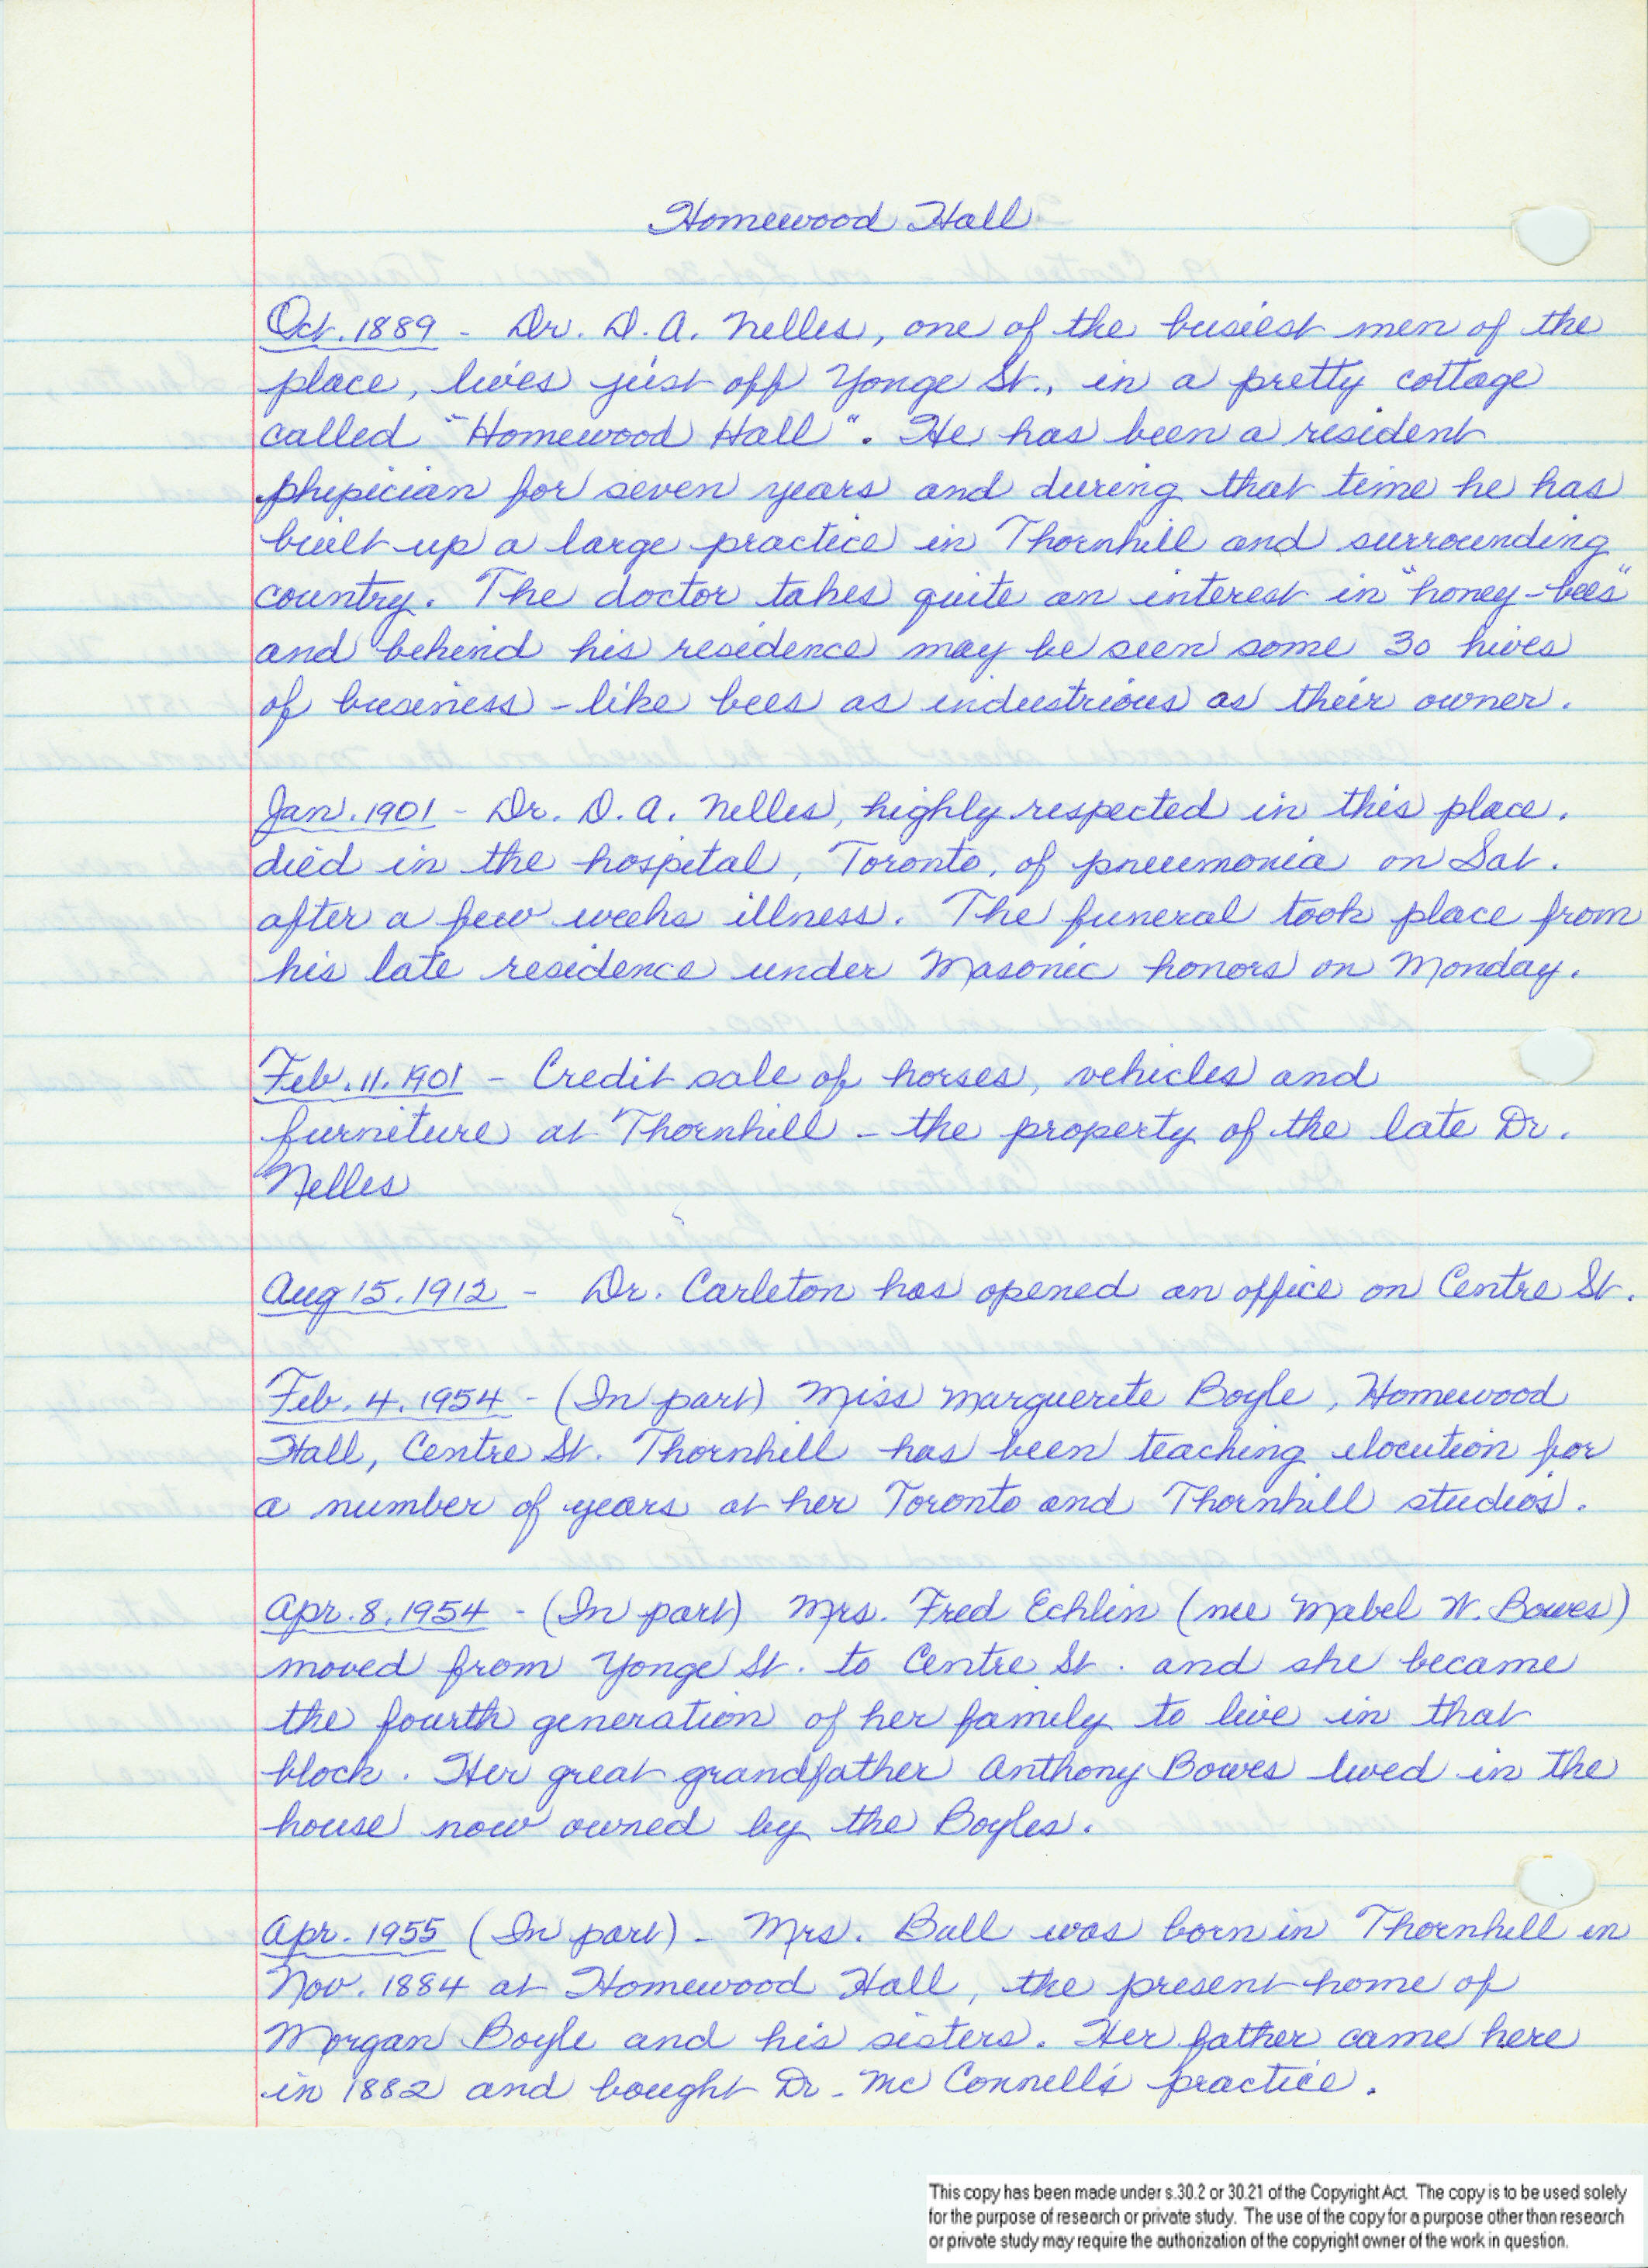 Homewood Hall
Oct. 1889 - Dr. D. A. Nelles, one of the busiest men of the
place, lives just off Yonge St., in a pretty cottage
called "Homewood Hall". He has been a resident
phypician for seven years and during that time he has
built up a large practice in Thornhill and surrounding
country. The doctor takes quite an interest in "honey-bees"
and behind his residence may be seen some 30 hives
of business - like bees as industrious as their owner.
Jan. 1901 - Dr. D. A. Nelles, highly respected in this place.
died in the hospital, Toronto, of pneumonia on Sat.
after a few weeks illness. The funeral took place from
his late residence under Masonic honors on Monday.
Feb. 11. 1901 - Credit sale of horses, vehicles and
furniture at Thornhill - the property of the late Dr.
Nelles
Aug 15. 1912 - Dr. Carleton has opened an office on Centre St.
Feb. 4. 1954 - (In part) Miss Marguerite Boyle, Homewood
Hall, Centre St. Thornhill has been teaching elocution for
a number of years at her Toronto and Thornhill studios.
Apr. 8. 1954 - (In part) Mrs. Fred Echlin (nee Mabel W. Bowes)
moved from Yonge St. to Centre St. and she became
the fourth generation of her family to live in that
block. Her great grandfather Anthony Bowes lived in the
house now owned by the Boyles.
Apr. 1955 (In part) - Mrs. Ball was born in Thornhill in
Nov. 1884 at Homewood Hall, the present home of
Morgan Boyle and his sisters. Her father came here
in 1882 and bought Dr. McConnell's practice.
This copy has been made under s.30.2 or 30.21 of the Copyright Act. The copy is to be used solely
for the purpose of research or private study. The use of the copy for a purpose other than research
or private study may require the authorization of the copyright owner of the work in question.